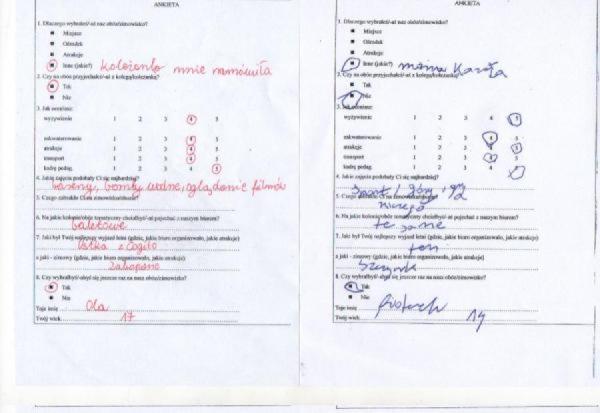 ANKIETA
1. Dlaczego wybrałeś/-aś nasz obóz/zimowisko?
Miejsce
Ośrodek
Atrakcje
Inne (jakie?) koleżanka mnie namówiła
2. Czy na obóz przyjechałeś/-aś z kolegą/koleżanką?
Tak
Nie
3. Jak oceniasz:
wyżywienie 1 2 3 4 5
zakwaterowanie 1 2 3 4 5
atrakcje 1 2 3 4 5
transport 1 2 3 4 5
kadrę pedag. 1 2 3 4 5
4. Jakie zajęcia podobały Ci się najbardziej?
baseny, bomby wodne, oglądanie filmów
5. Czego zabrakło Ci na zimowisku/obozie?
6. Na jakie kolonie/obóz tematyczny chciałbyś/-abyś pojechać z naszym biurem?
baletowe
7. Jaki był Twój najlepszy wyjazd letni (gdzie, jakie biuro organizowało, jakie atrakcje)
Ustka z Cogito
a jaki - zimowy (gdzie, jakie biuro organizowało, jakie atrakcje)
Zakopane
8. Czy wybrałbyś/-abyś się jeszcze raz na nasz obóz/zimowisko?
Tak
Nie
Twoje imię Ola
Twój wiek 17
ANKIETA
1. Dlaczego wybrałeś/-aś nasz obóz/zimowisko?
Miejsce
Ośrodek
Atrakcje
Inne (jakie?) mama kazała
2. Czy na obóz przyjechałeś/-aś z kolegą/koleżanką?
Tak
Nie
3. Jak oceniasz:
wyżywienie 1 2 3 4 5
zakwaterowanie 1 2 3 4 5
atrakcje 1 2 3 4 5
transport 1 2 3 4 5
kadrę pedag. 1 2 3 4
4. Jakie zajęcia podobały Ci się najbardziej?
5. Czego zabrakło Ci na zimowisku/obozie?
niczego
6. Na jakie kolonie/obóz tematyczny chciałbyś/-abyś pojechać z naszym biurem?
te same
7. Jaki był Twój najlepszy wyjazd letni (gdzie, jakie biuro organizowało, jakie atrakcje)
ten
a jaki - zimowy (gdzie, jakie biuro organizowało, jakie atrakcje)
8. Czy wybrałbyś/-abyś się jeszcze raz na nasz obóz/zimowisko?
Tak
Nie
Twoje imię
Twój wiek 14